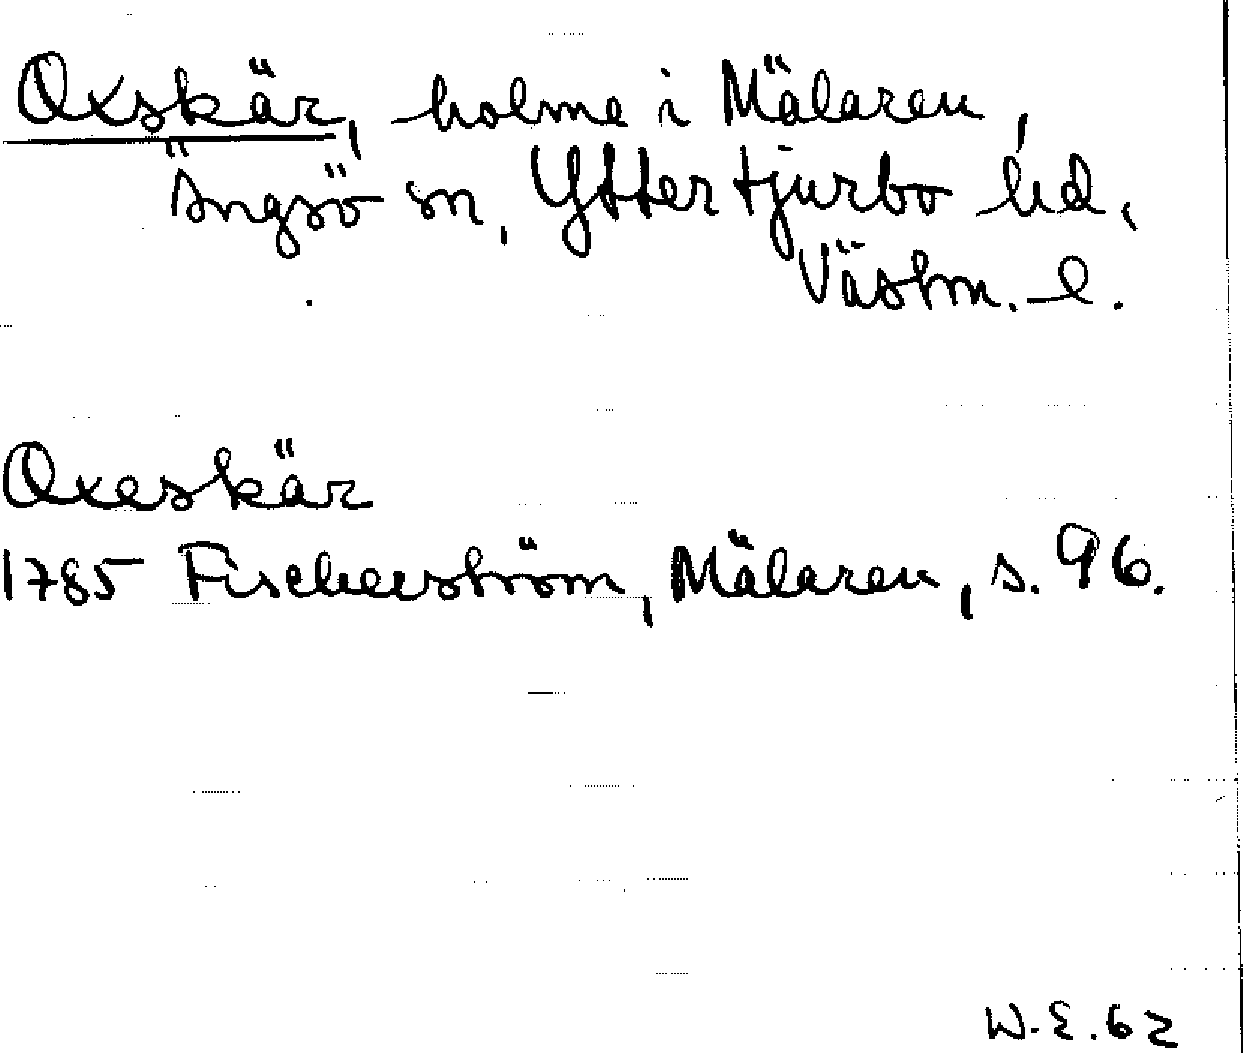 Oxskär, holme i Mälaren,
Ängsö sn, Yttertjurbo hd,
Västm. l.
Oxeskär
1785 Fischerström, Mälaren, s. 96.
W.E. 62